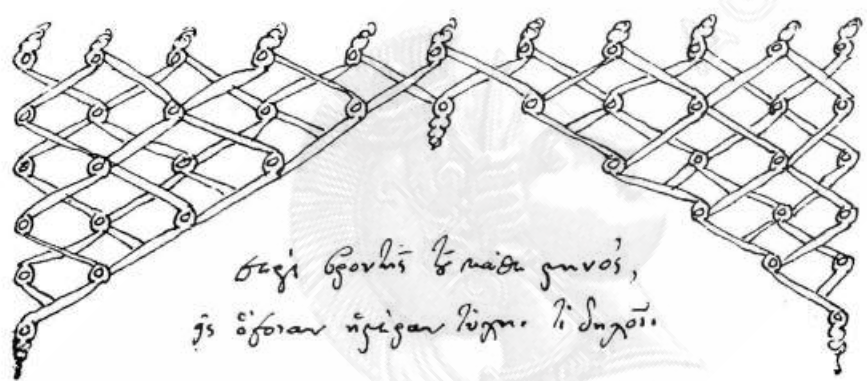 περὶ βροντῆς τοῦ κάθε μηνός,
εἰς ὁποίαν ἡμέραν τύχῃ. τί δηλοῖ.